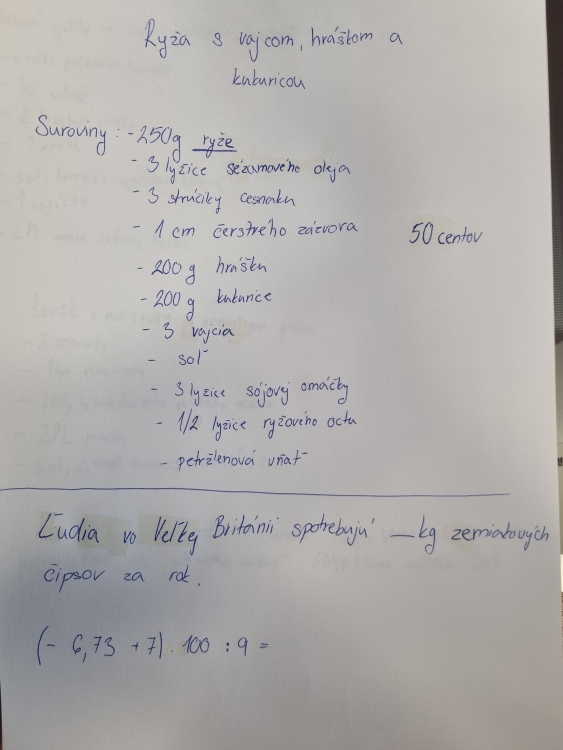 Ryža s vajcom, hráškom a
kukuricou
Suroviny: - 250g ryže
- 3 lyžice sézamového oleja
- 3 strúčiky cesnaku
- 1 cm čerstvého zázvora
50 centov
- 200 g hrášku
- 200 g kukurice
- 3 vajcia
- soľ
- 3 lyžice sójovej omáčky
- 1/2 lyžice ryžového octu
- petržlenová vňať
Ľudia vo Veľkej Británii spotrebujú __ kg zemiakových
čipsov za rok.
(- 6,73 + 7) . 100 : 9 =